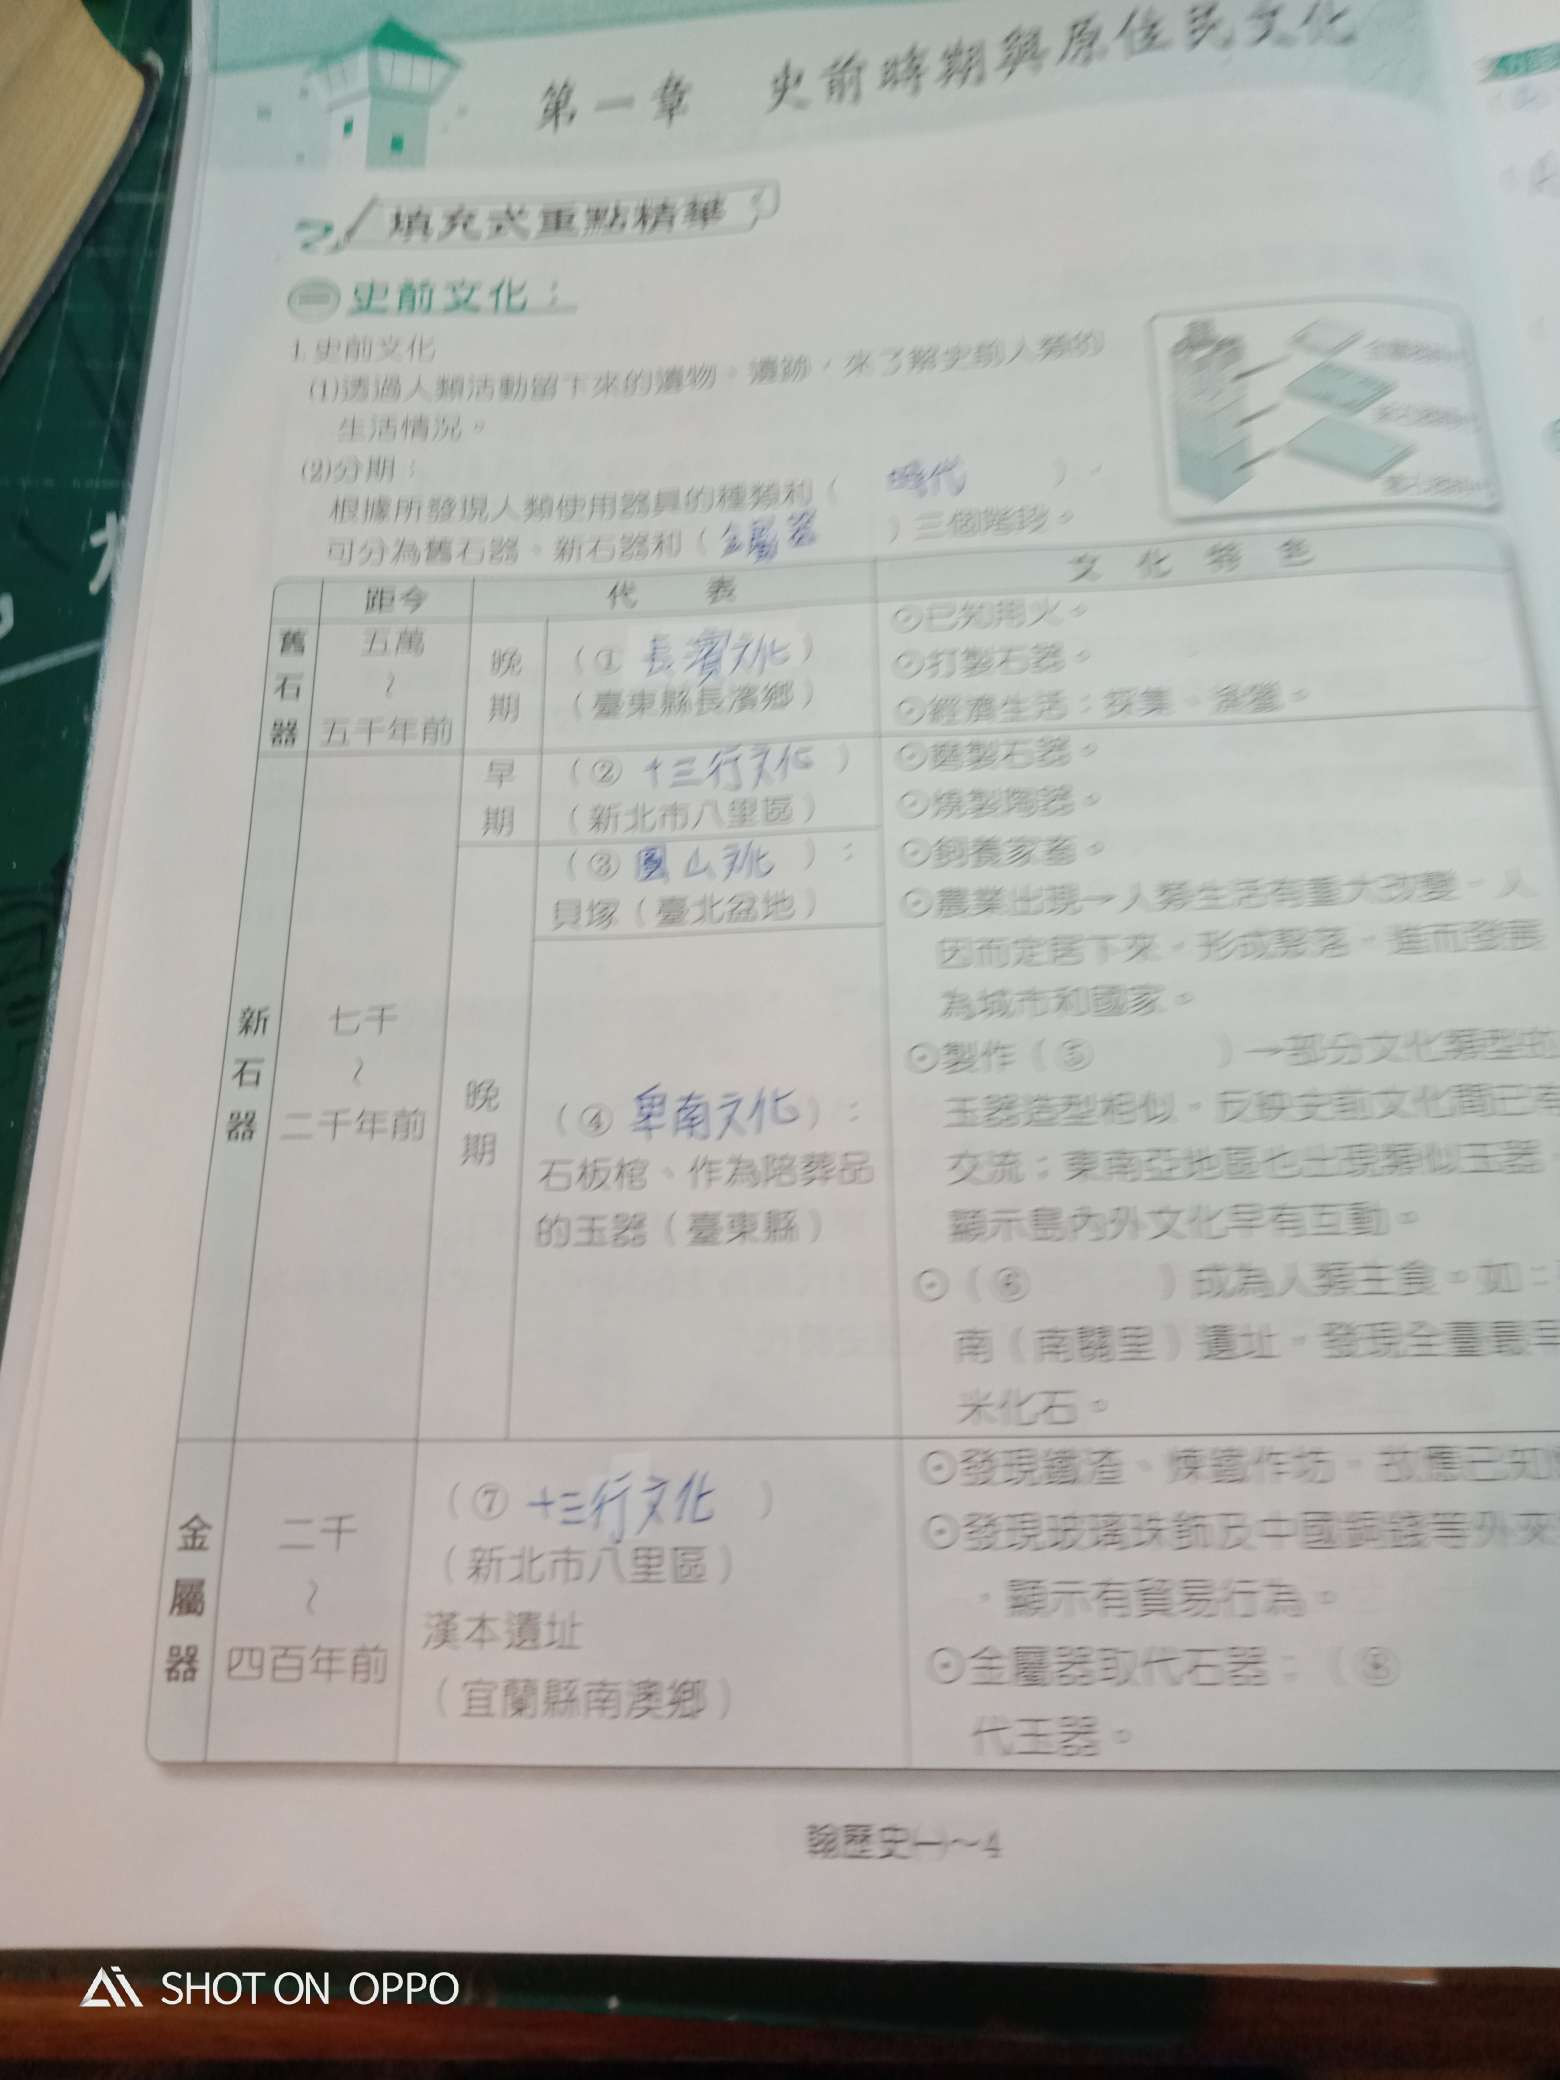 第一章 史前時期與原住民文化
填充式重點精華
一 史前文化：
1.史前文化
(1)透過人類活動留下來的遺物、遺跡，來了解史前人類的
生活情況。
(2)分期：
根據所發現人類使用器具的種類和（ 時代 ），
可分為舊石器、新石器和（金屬器 ）三個階段。
距今 代 表 文 化 特 色
舊石器
五萬
～
五千年前
晚期
（① 長濱文化）
（臺東縣長濱鄉）
⊙已知用火。
⊙打製石器。
⊙經濟生活：採集、漁獵。
新石器
七千
～
二千年前
早期
（② 十三行文化 ）
（新北市八里區）
晚期
（③ 圓山文化 ）：
貝塚（臺北盆地）
（④ 卑南文化）：
石板棺、作為陪葬品
的玉器（臺東縣）
⊙磨製石器。
⊙燒製陶器。
⊙飼養家畜。
⊙農業出現→人類生活有重大改變，人
因而定居下來，形成聚落，進而發展
為城市和國家。
⊙製作（⑤ ）→部分文化類型的
玉器造型相似，反映史前文化間已有
交流；東南亞地區也出現類似玉器，
顯示島內外文化早有互動。
⊙（⑥ ）成為人類主食。如：
南（南關里）遺址，發現全臺最早
米化石。
金屬器
二千
～
四百年前
（⑦ 十三行文化 ）
（新北市八里區）
漢本遺址
（宜蘭縣南澳鄉）
⊙發現鐵渣、煉鐵作坊，故應已知
⊙發現玻璃珠飾及中國銅錢等外來
，顯示有貿易行為。
⊙金屬器取代石器；（⑧
代玉器。
翰歷史(一)～4
SHOT ON OPPO